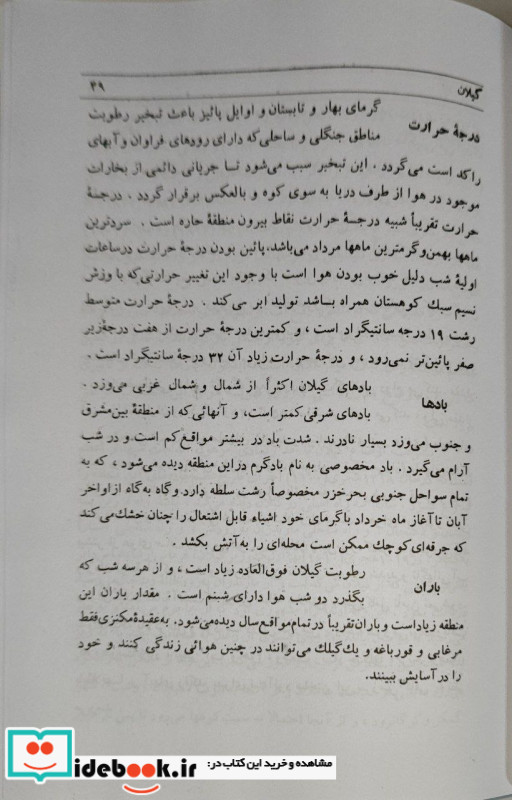 گیلان ۳۹
درجهٔ حرارت گرمای بهار و تابستان و اوایل پائیز باعث تبخیر رطوبت
مناطق جنگلی و ساحلی که دارای رودهای فراوان و آبهای
راکد است می‌گردد . این تبخیر سبب می‌شود تا جریانی دائمی از بخارات
موجود در هوا از طرف دریا به سوی کوه و بالعکس برقرار گردد . درجهٔ
حرارت تقریباً شبیه درجهٔ حرارت نقاط بیرون منطقهٔ حاره است . سردترین
ماهها بهمن و گرمترین ماهها مرداد می‌باشد، پائین بودن درجهٔ حرارت در ساعات
اولیهٔ شب دلیل خوب بودن هوا است با وجود این تغییر حرارتی که با وزش
نسیم سبك کوهستان همراه باشد تولید ابر می‌کند . درجهٔ حرارت متوسط
رشت ۱۹ درجه سانتیگراد است ، و کمترین درجهٔ حرارت از هفت درجهٔ زیر
صفر پائین‌تر نمی‌رود ، و درجهٔ حرارت زیاد آن ۳۲ درجهٔ سانتیگراد است .
بادها بادهای گیلان اکثراً از شمال و شمال غربی می‌وزد .
بادهای شرقی کمتر است، و آنهائی که از منطقهٔ بین مشرق
و جنوب می‌وزد بسیار نادرند . شدت باد در بیشتر مواقع کم است و در شب
آرام می‌گیرد . باد مخصوصی به نام بادگرم در این منطقه دیده می‌شود ، که به
تمام سواحل جنوبی بحرخزر مخصوصاً رشت سلطه دارد و گاه به گاه از اواخر
آبان تا آغاز ماه خرداد با گرمای خود اشیاء قابل اشتعال را چنان خشك می‌کند
که جرقه‌ای کوچك ممکن است محله‌ای را به آتش بکشد .
باران رطوبت گیلان فوق‌العاده زیاد است ، و از هر سه شب که
بگذرد دو شب هوا دارای شبنم است . مقدار باران این
منطقه زیاد است و باران تقریباً در تمام مواقع سال دیده می‌شود. به عقیدهٔ مکنزی فقط
مرغابی و قورباغه و یك گیلك می‌توانند در چنین هوائی زندگی کنند و خود
را در آسایش ببینند.
مشاهده و خرید این کتاب در:
idebook.ir